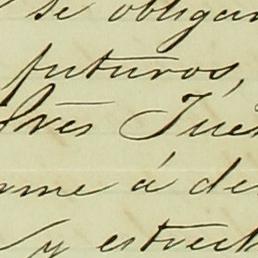 se obligan
futuros,
tres Jue
me á de
y estrech